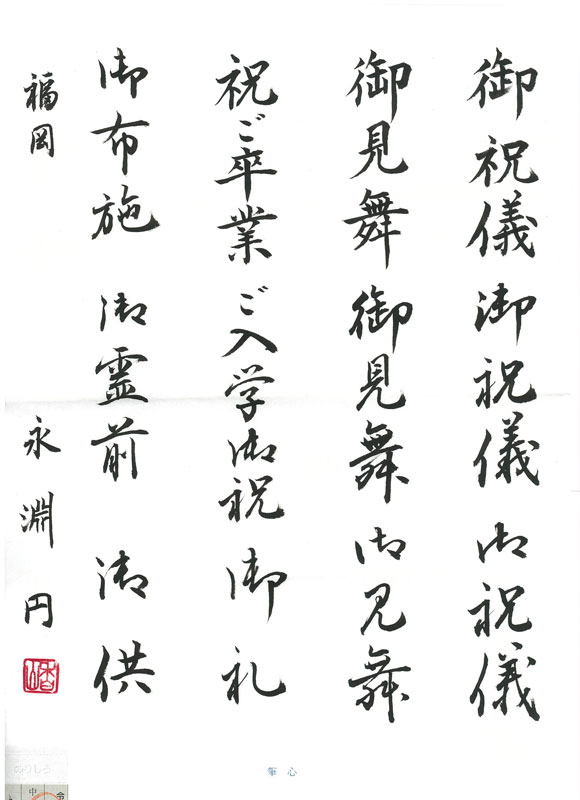 御祝儀 御祝儀 御祝儀
御見舞 御見舞 御見舞
祝ご卒業 ご入学御祝 御礼
御布施 御霊前 御供
福岡 永淵円
筆心
のりしろ
中
令